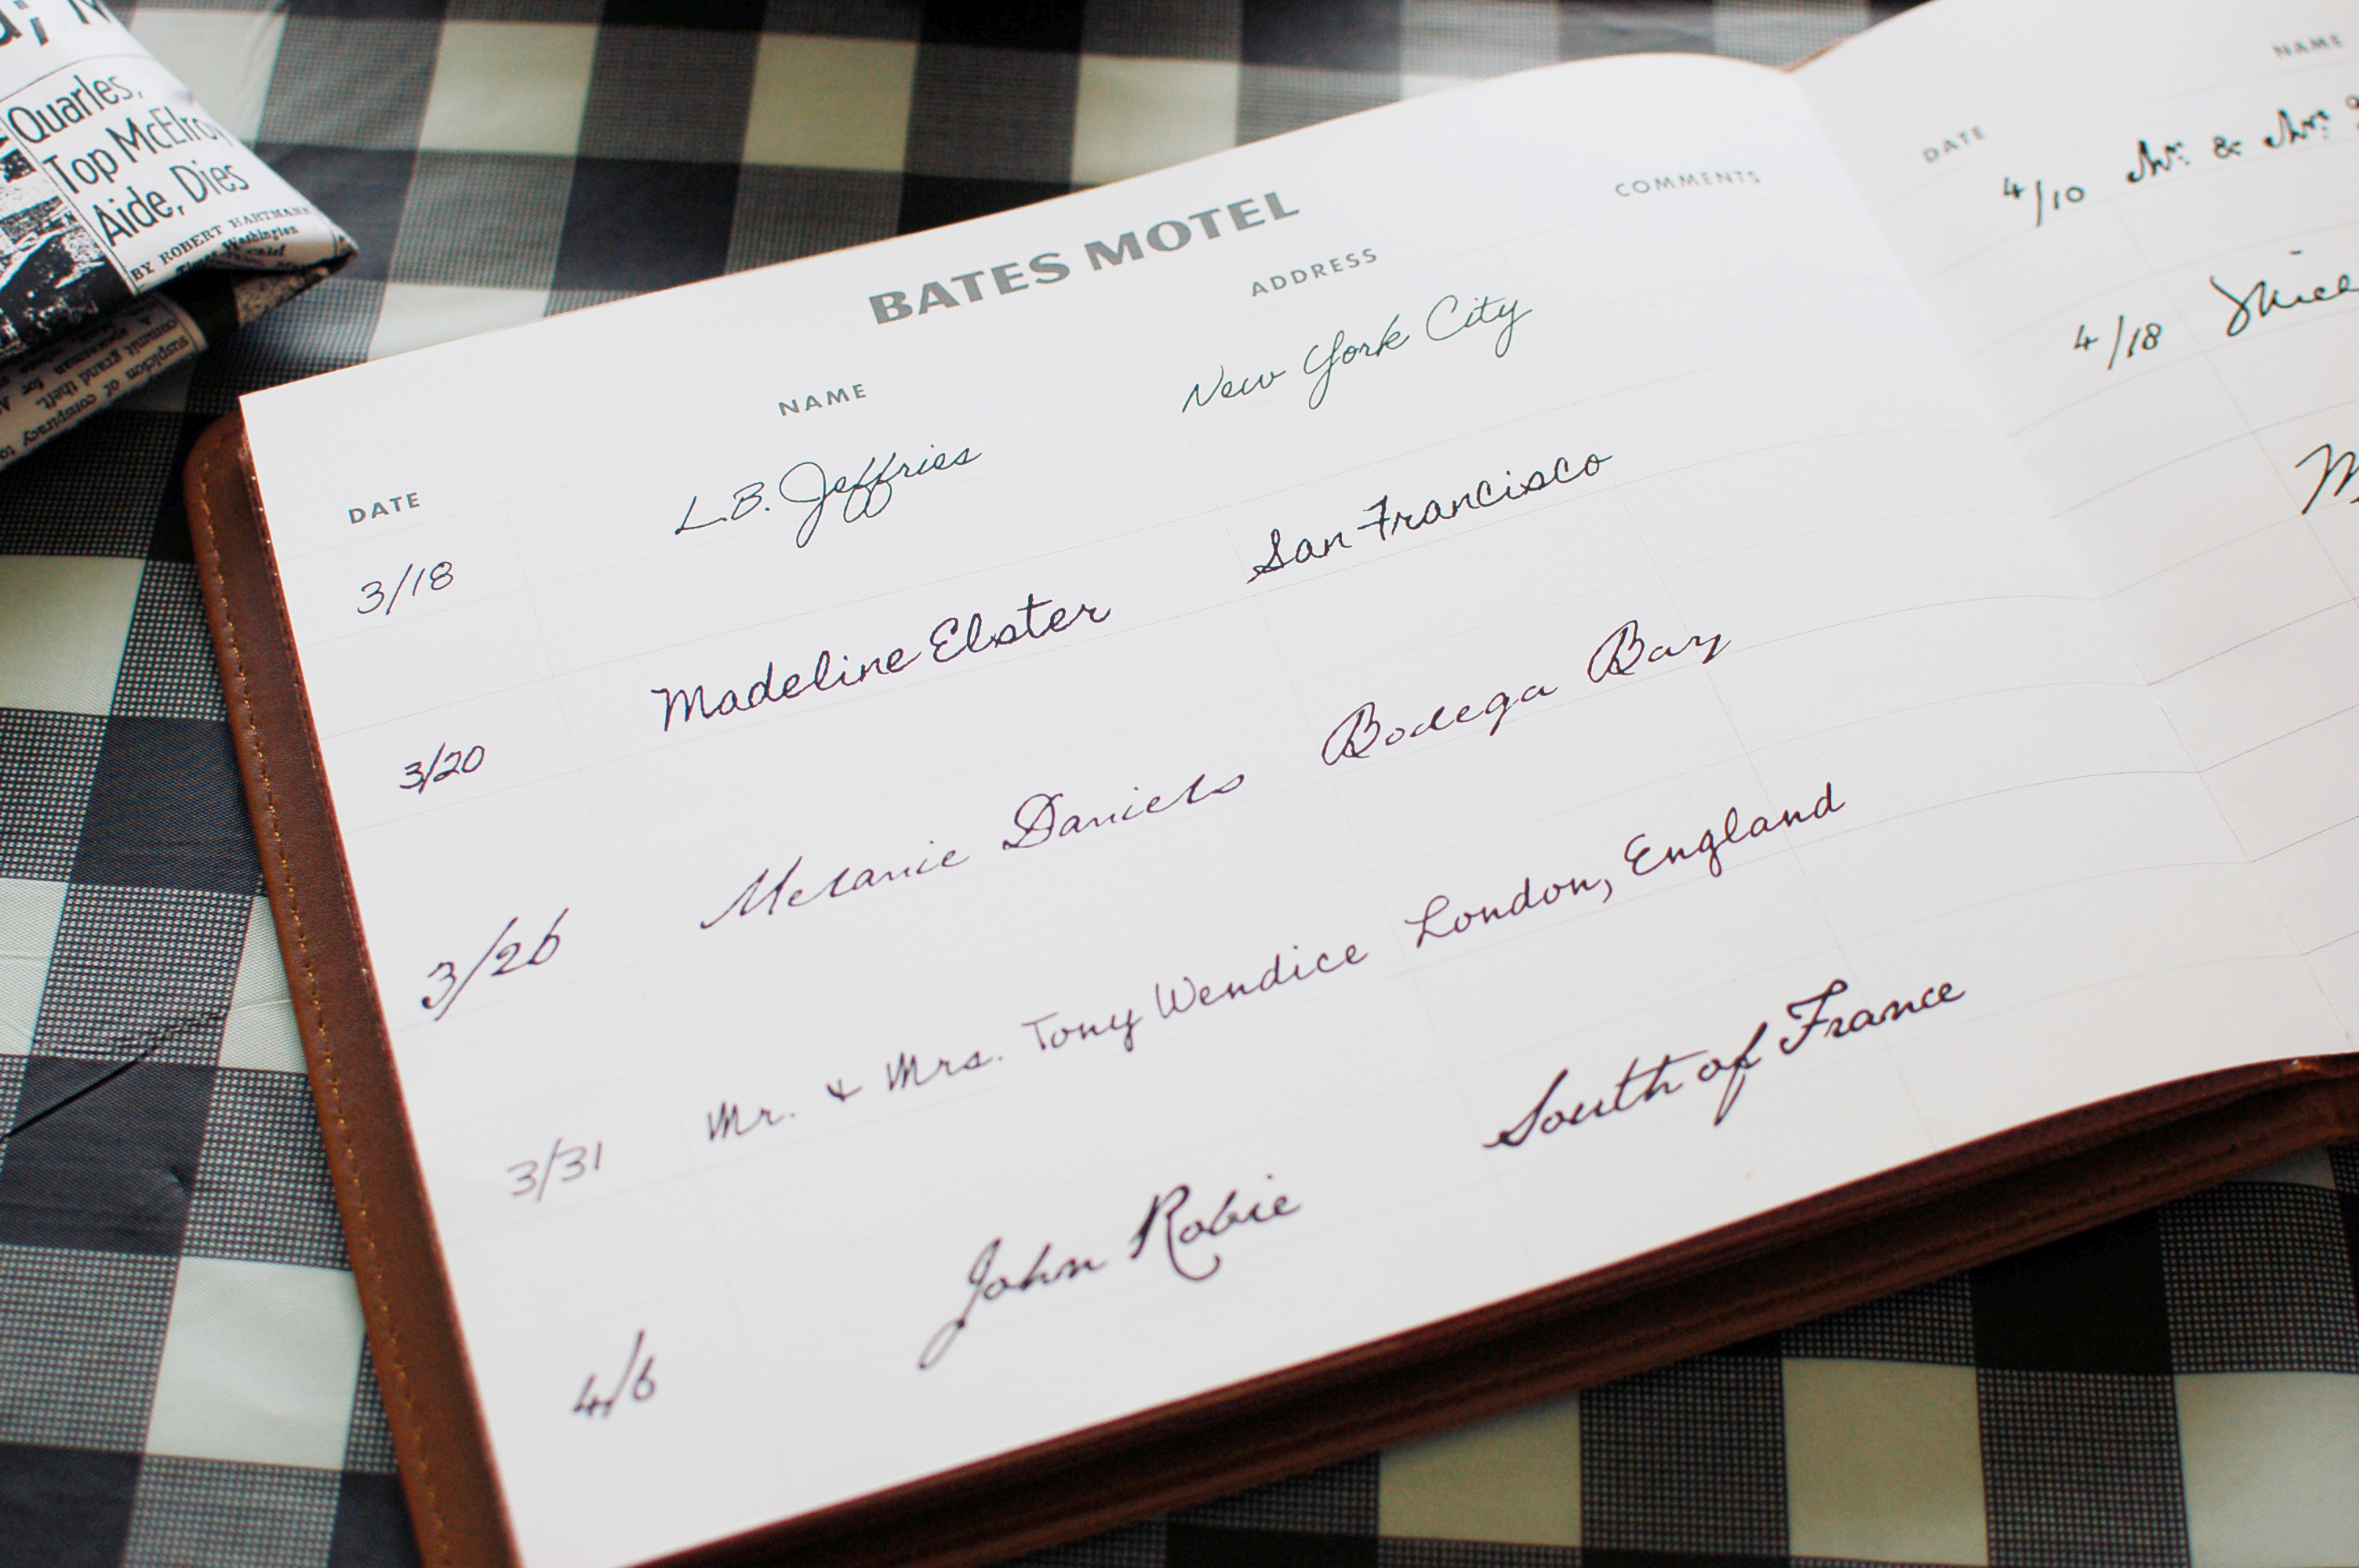 Quarles,
Top McElroy
Aide, Dies
BY ROBERT HARTMANN
Washington
BATES MOTEL
DATE NAME ADDRESS COMMENTS
3/18 L.B. Jeffries New York City
3/20 Madeline Elster San Francisco
3/26 Melanie Daniels Bodega Bay
3/31 Mr. & Mrs. Tony Wendice London, England
4/6 John Robie South of France
DATE NAME
4/10 Mr. & Mrs.
4/18
suspicion of conspiracy
commit grand theft.